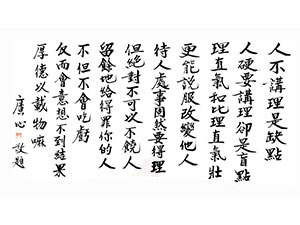 人不講理是缺點
人硬要講理卻是盲點
理直氣和比理直氣壯
更能說服改變他人
待人處事固然要得理
但絕對不可以不饒人
留餘地給得罪你的人
不但不會吃虧
反而會意想不到結果
厚德以載物嘛
廣心 敬題